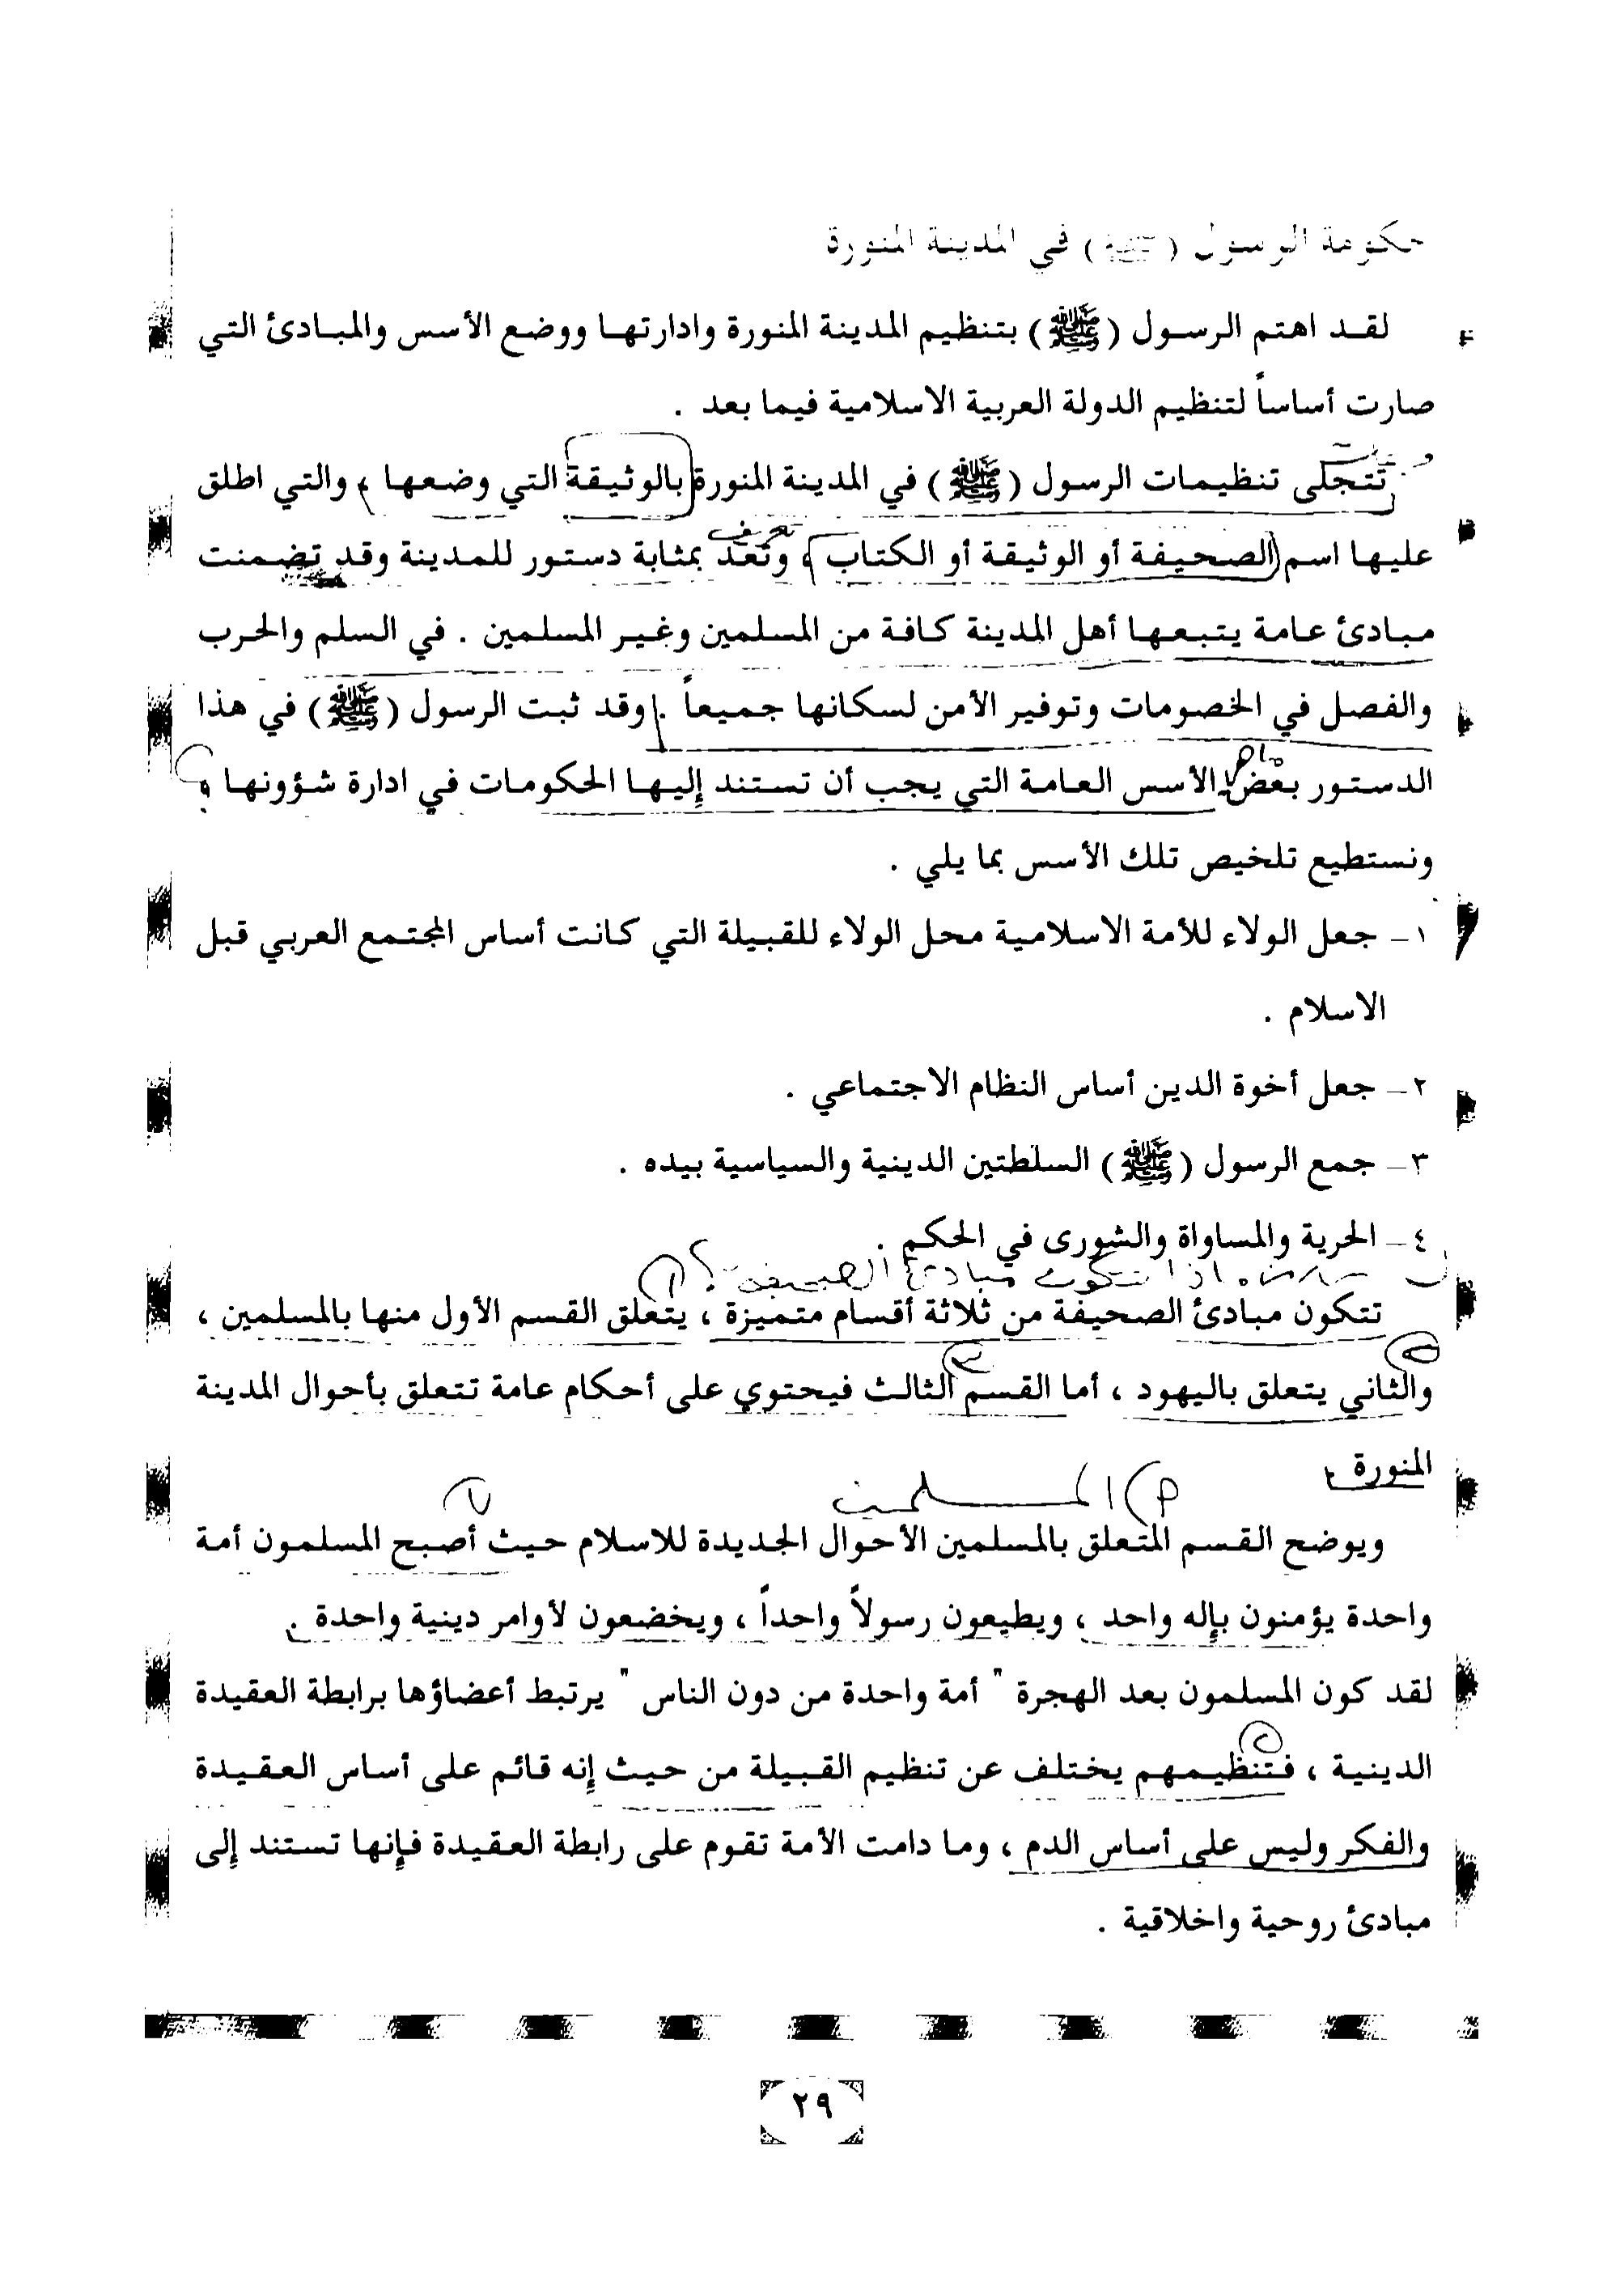 حكومة الرسول (ﷺ) في المدينة المنورة
لقد اهتم الرسول (ﷺ) بتنظيم المدينة المنورة وادارتها ووضع الأسس والمبادئ التي
صارت أساساً لتنظيم الدولة العربية الاسلامية فيما بعد .
تتجلى تنظيمات الرسول (ﷺ) في المدينة المنورة بالوثيقة التي وضعها ، والتي اطلق
تعرف
عليها اسم (الصحيفة أو الوثيقة أو الكتاب) ، وتعد بمثابة دستور للمدينة وقد تضمنت
مبادئ عامة يتبعها أهل المدينة كافة من المسلمين وغير المسلمين . في السلم والحرب
والفصل في الخصومات وتوفير الأمن لسكانها جميعاً . وقد ثبت الرسول (ﷺ) في هذا
الدستور بعض الأسس العامة التي يجب أن تستند إليها الحكومات في ادارة شؤونها ،
ونستطيع تلخيص تلك الأسس بما يلي .
١- جعل الولاء للأمة الاسلامية محل الولاء للقبيلة التي كانت أساس المجتمع العربي قبل
الاسلام .
٢- جعل أخوة الدين أساس النظام الاجتماعي .
٣- جمع الرسول (ﷺ) السلطتين الدينية والسياسية بيده .
٤- الحرية والمساواة والشورى في الحكم .
تتكون مبادئ الصحيفة ؟ ١
تتكون مبادئ الصحيفة من ثلاثة أقسام متميزة ، يتعلق القسم الأول منها بالمسلمين ،
والثاني يتعلق باليهود ، أما القسم الثالث فيحتوي على أحكام عامة تتعلق بأحوال المدينة
المنورة .
م) المسلمين
ويوضح القسم المتعلق بالمسلمين الأحوال الجديدة للاسلام حيث أصبح المسلمون أمة
واحدة يؤمنون بإله واحد ، ويطيعون رسولاً واحداً ، ويخضعون لأوامر دينية واحدة .
لقد كون المسلمون بعد الهجرة " أمة واحدة من دون الناس " يرتبط أعضاؤها برابطة العقيدة
الدينية ، فتنظيمهم يختلف عن تنظيم القبيلة من حيث إنه قائم على أساس العقيدة
والفكر وليس على أساس الدم ، وما دامت الأمة تقوم على رابطة العقيدة فإنها تستند إلى
مبادئ روحية واخلاقية .
٢٩